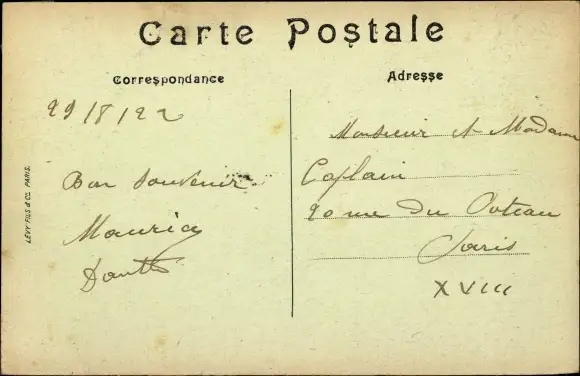 Carte Postale
Correspondance
Adresse
29/8/22
Bon Souvenir
Maurice
Monsieur et Madame
Caplain
90 rue Du Poteau
Paris
XVIII
LÉVY FILS & Cie. PARIS.